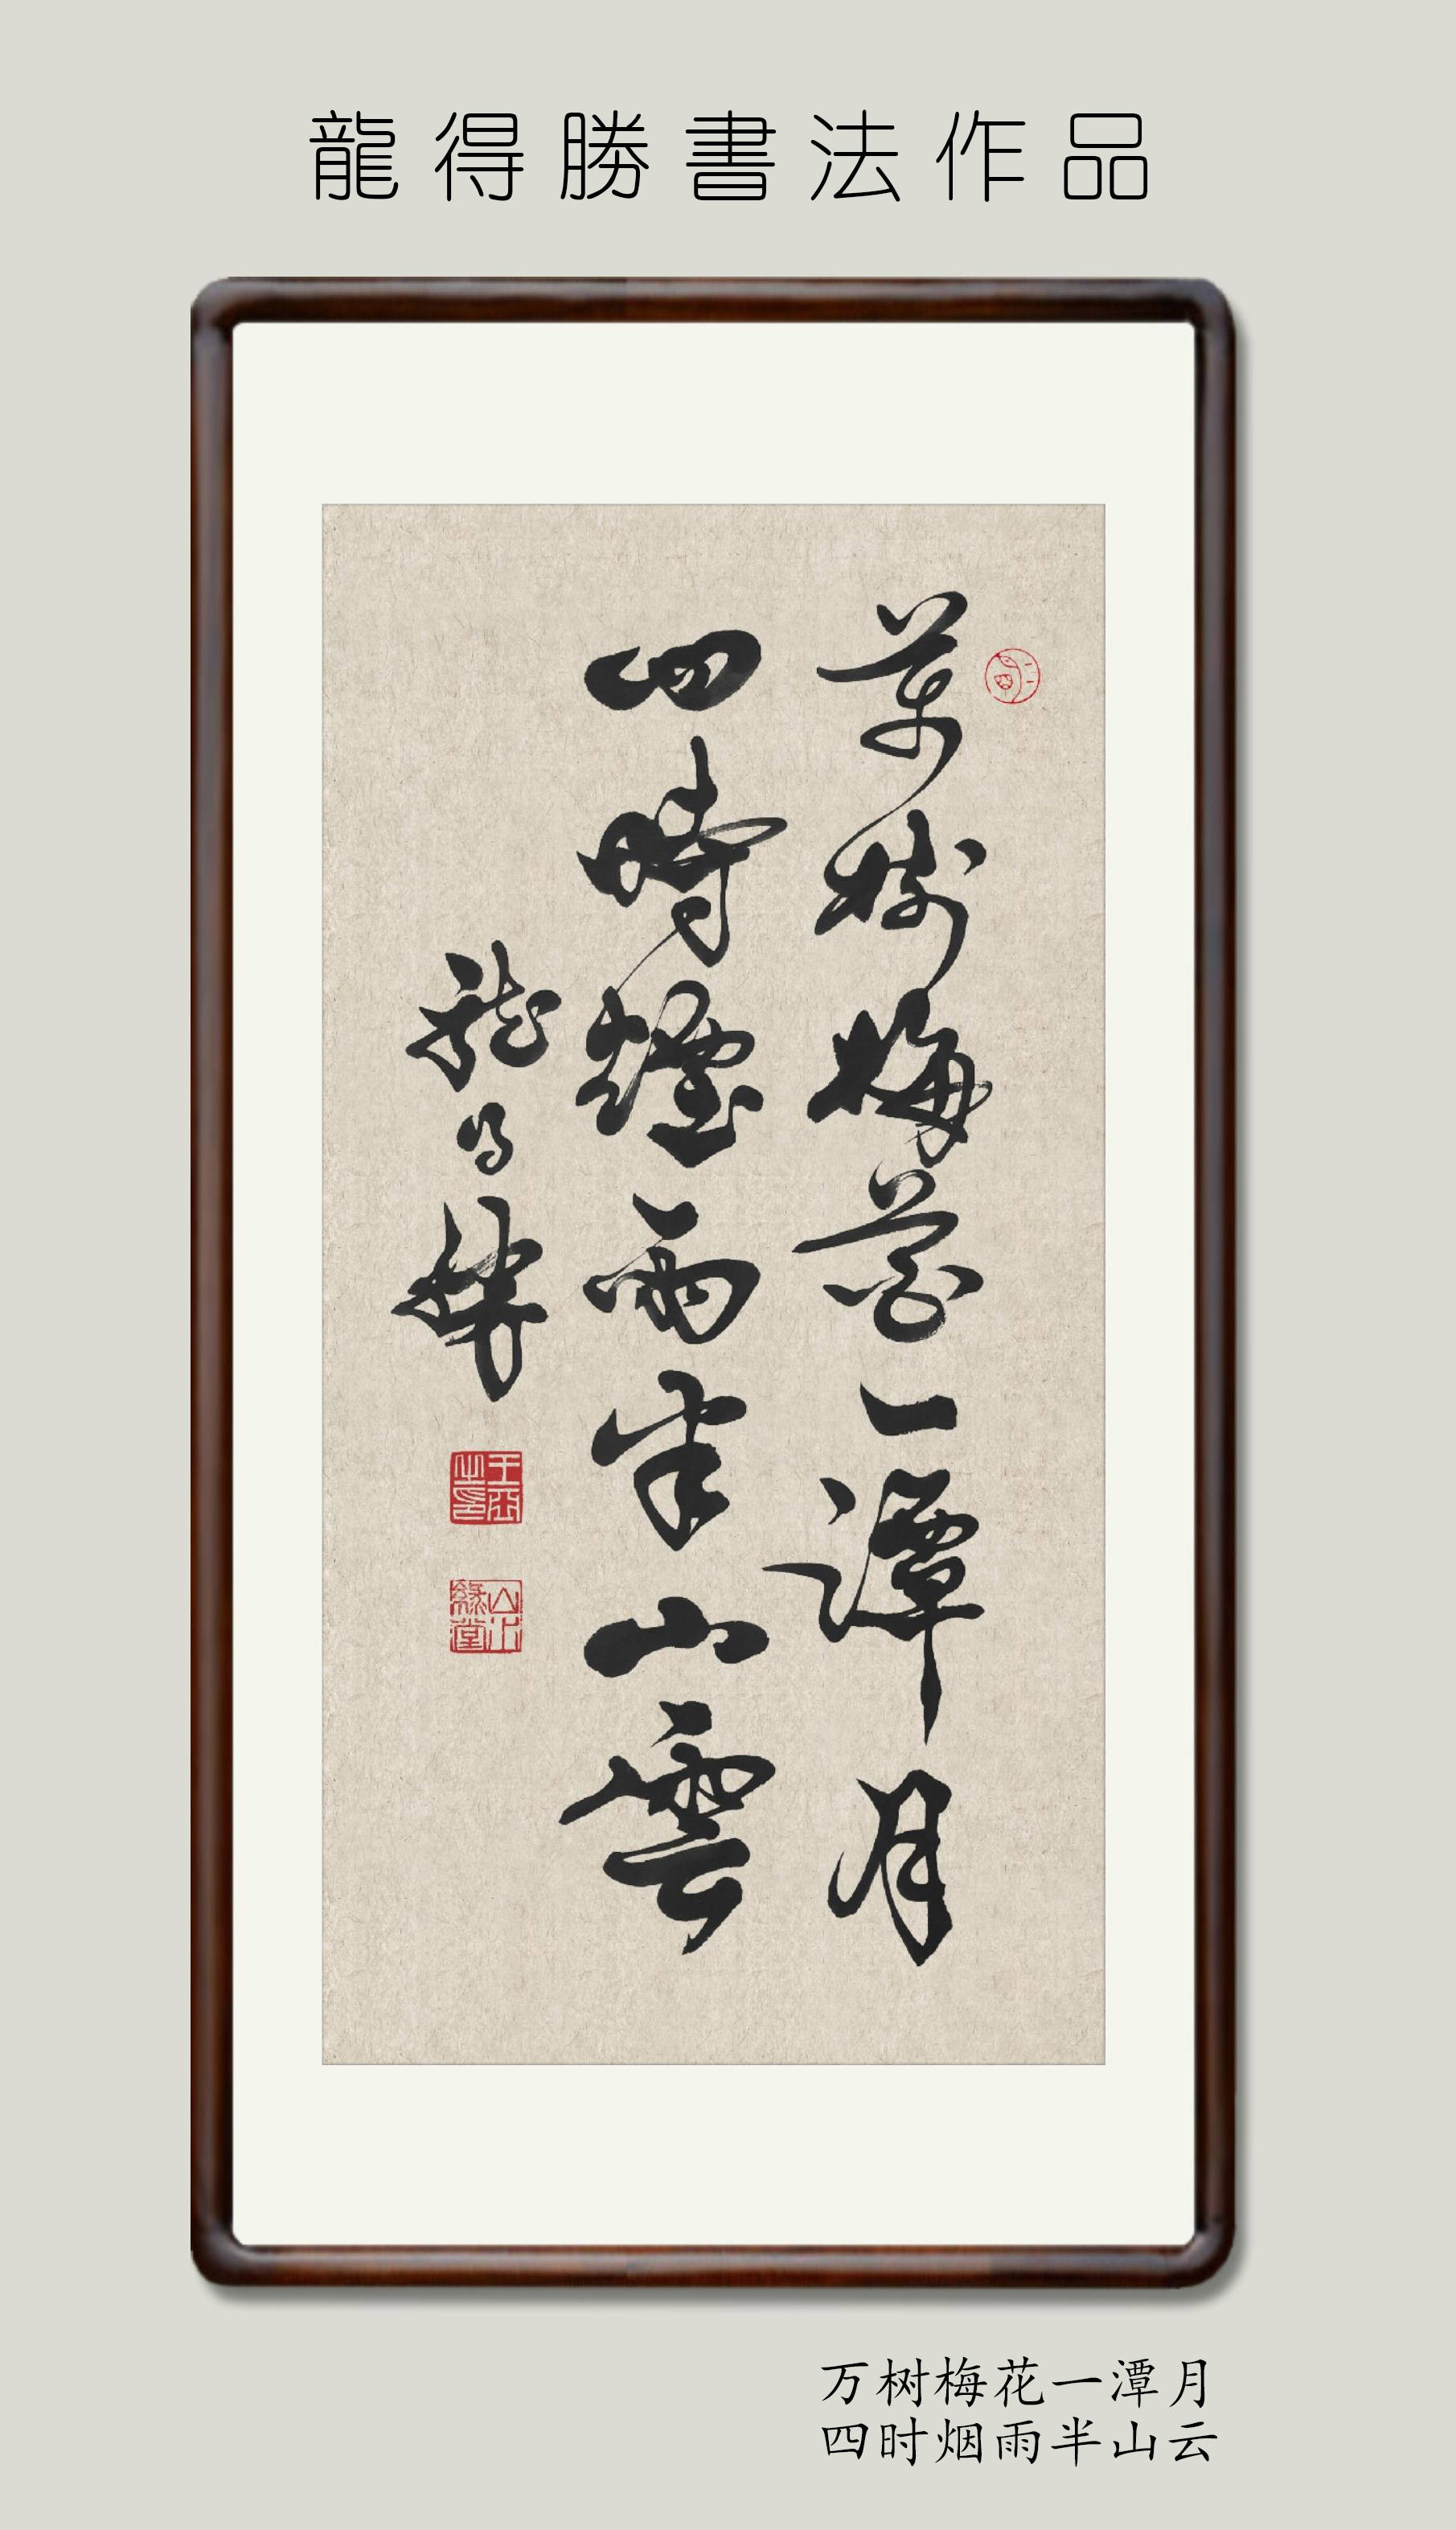 龍得勝書法作品
萬樹梅花一潭月
四時煙雨半山雲
龍得勝
万树梅花一潭月
四时烟雨半山云